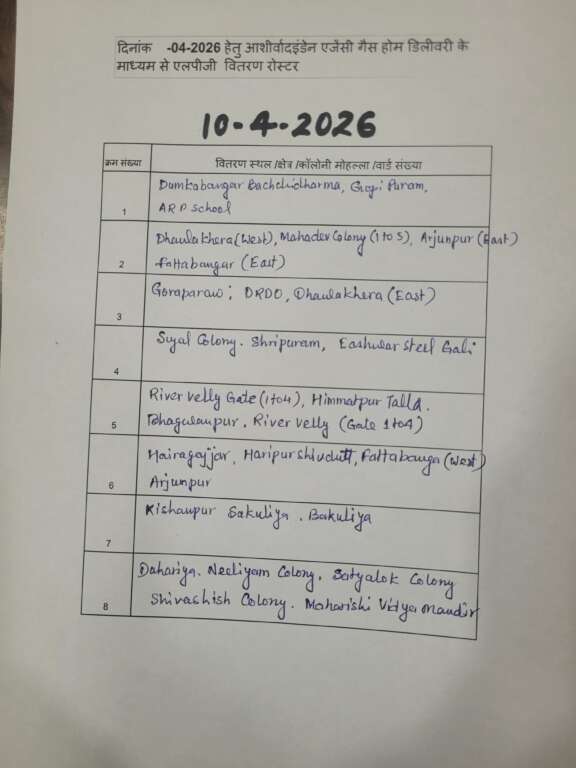 दिनांक -04-2026 हेतु आशीर्वादइंडेन एजेंसी गैस होम डिलीवरी के
माध्यम से एलपीजी वितरण रोस्टर
10-4-2026
क्रम संख्या वितरण स्थल /क्षेत्र /कॉलोनी मोहल्ला /वार्ड संख्या
Dumkabangar Bachchidharma, Gopi Puram,
1 ARP School
Dhaulakhera (West), Mahadev Colony (1 to 5), Arjunpur (East)
2 Fattabangar (East)
Goraparaw; DRDO, Dhaulakhera (East)
3
Suyal Colony. Shripuram, Eashwar Steel Gali
4
River Velly Gate (1 to 4), Himmatpur Talla.
5 Bhagwanpur. River Velly (Gate 1 to 4)
Hairagajjar, Haripur Shivdutt, Fattabanga (West)
6 Arjunpur
Kishanpur Sakuliya. Bakuliya
7
Dahariya. Neeliyam Colony. Satyalok Colony
8 Shivashish Colony. Maharishi Vidya mandir